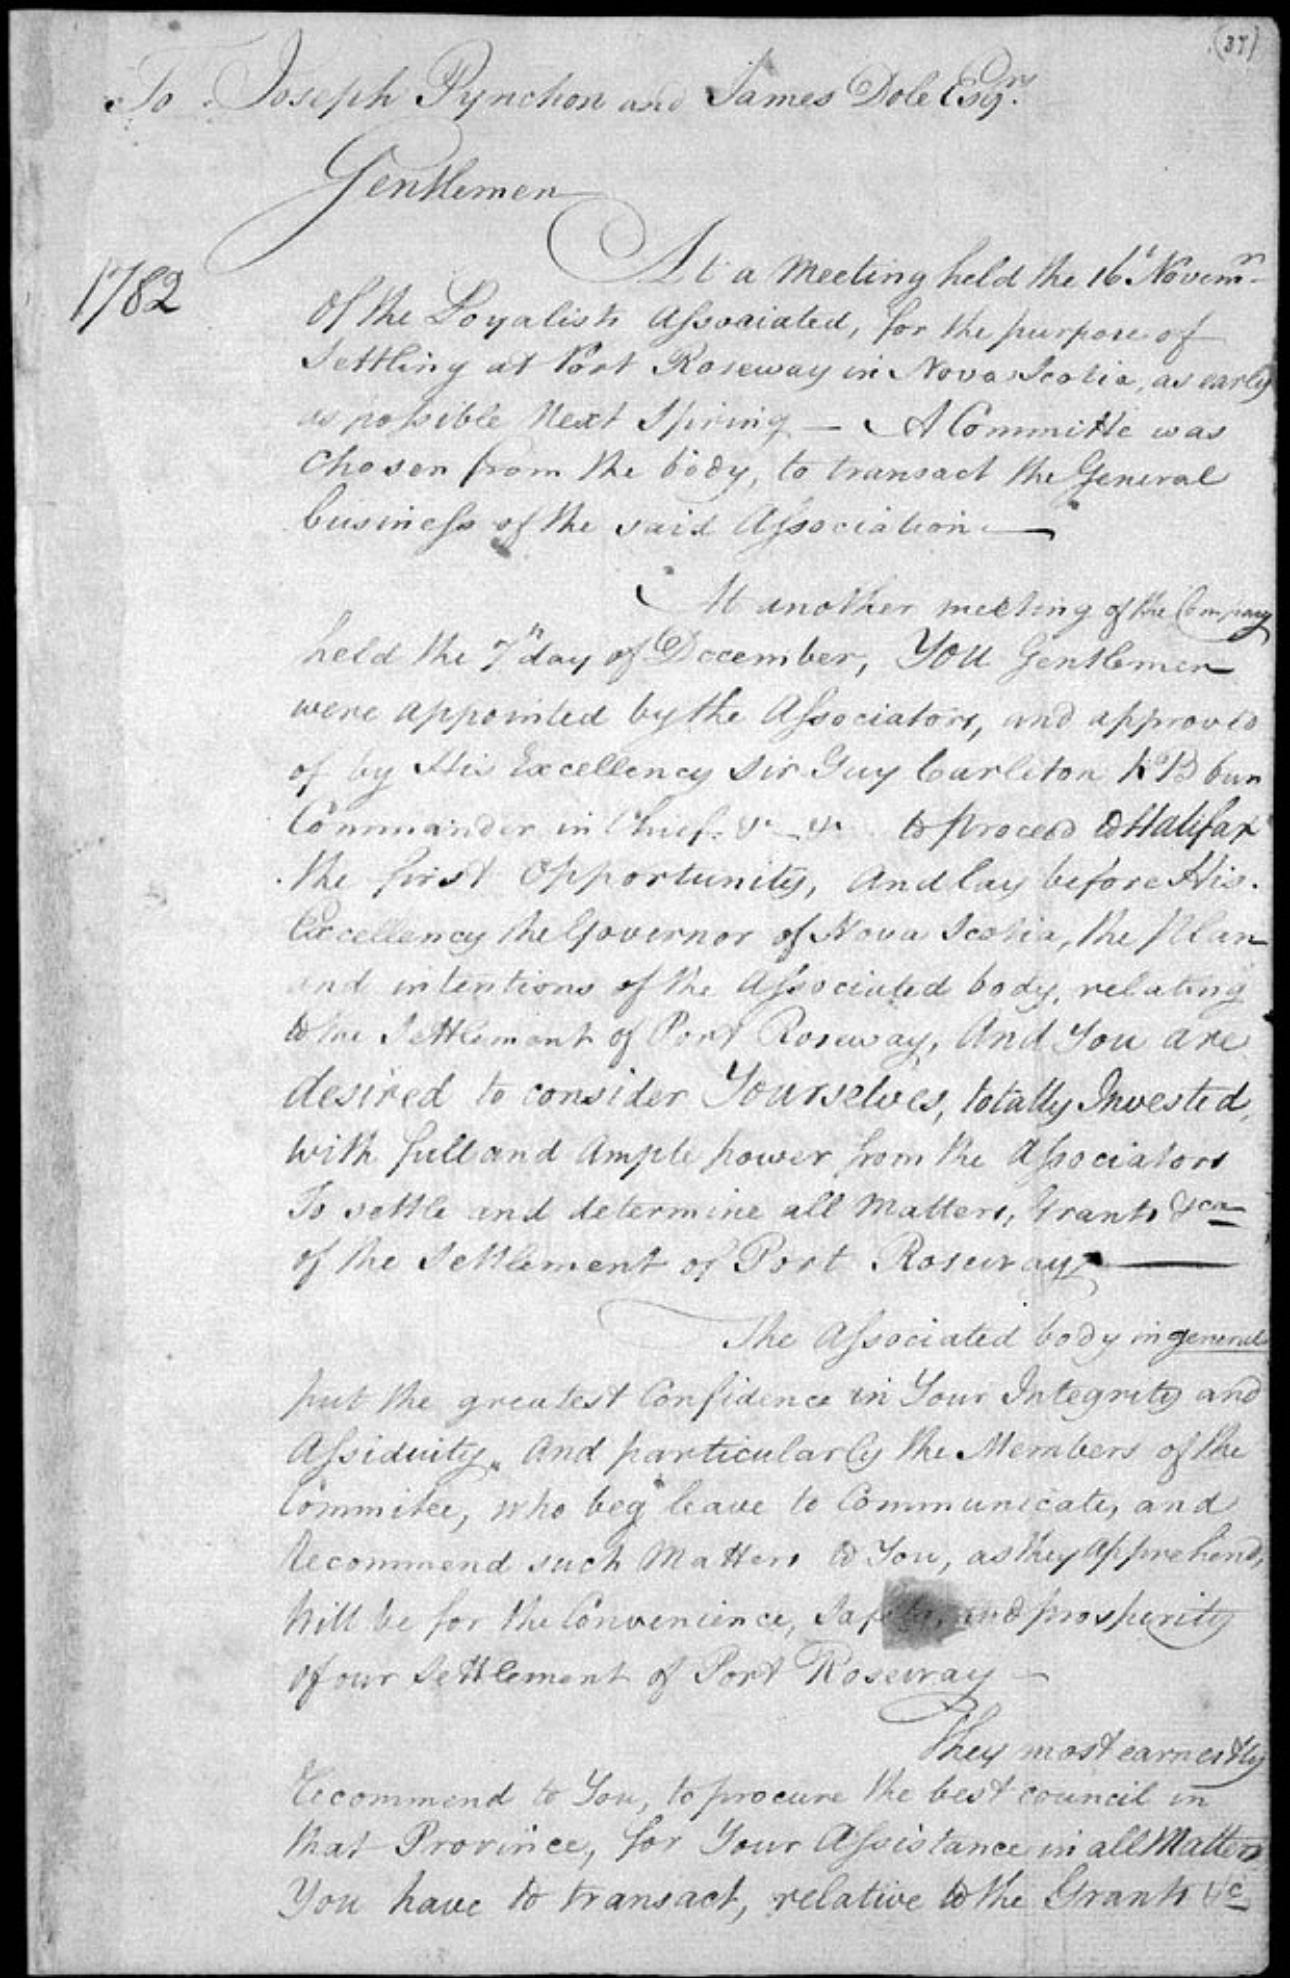 (37)
To Joseph Pynchon and James Dole Esqrs.
Gentlemen
At a Meeting held the 16t Novemr
1782
Of the Loyalists Associated, for the purpose of
Settling at Port Roseway in Nova Scotia, as early
as possible Next Spring — A Committe was
Chosen from the body, to transact the General
business of the said Association —
At another meeting of the Company
held the 7th day of December, You Gentlemen
were appointed by the Associators, and approved
of by His Excellency Sir Guy Carleton K B
Commander in Chief &c — &c to proceed to Halifax
the first Opportunity, And lay before His
Excellency the Governor of Nova Scotia, the Plan
and intentions of the Associated body, relating
to the Settlement of Port Roseway, And You are
desired to consider Yourselves, totally Invested,
with full and Ample power from the Associators
To settle and determine all Matters, Grants &ca
of the Settlement of Port Roseway —
The Associated body in general
put the greatest Confidence in Your Integrity and
Assiduity, And particularly the Members of the
Commitee, who beg leave to Communicate, and
Recommend such Matters to You, as they apprehend,
Will be for the Convenience, Safety, and prosperity
Of our Settlement of Port Roseway —
They most earnestly
Recommend to You, to procure the best council in
that Province, for Your Assistance in all Matters
You have to transact, relative to the Grants &c